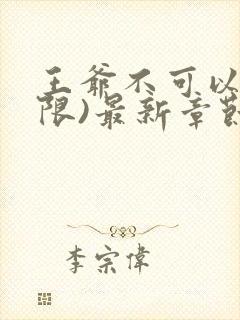 王爺不可以
限)最新章節
李宗偉